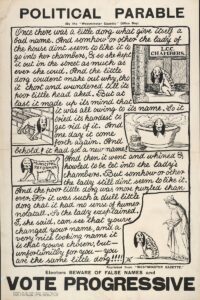 POLITICAL PARABLE
By the "Westminster Gazette" Office Boy.
Once there was a little dorg what give itself a
bad name. And somhow or other the lady of
the house dint seem to like it to
go into her chambers, & so she kept
it out on the street as much as
ever she could. And the little
dorg couldent make out why,
it thort and wundered till its
poor little head aked. But at
last it made up its mind that
it was all owing to its name. So it
toied its hardest to
get rid of it. And
one day it come
back again. And
behold! it had got a new name!
And then it went and whined &
howled to be let into the lady's
chambers. But somhow or other
the lady still dint seem to like it.
And the poor little dorg was more puzled than
ever. For it was such a dull little
dorg that it had no sens of humer
notatall. So the lady explained.
I, she said, can see that you've
changed your name, and a
very nice looking name it
is that you've chosen, but—
unfortunitly for you— you
are the same little dorg!!!!
L.C.C.
CHAMBERS
Reprinted from the "WESTMINSTER GAZETTE."
Electors BEWARE OF FALSE NAMES and
VOTE PROGRESSIVE